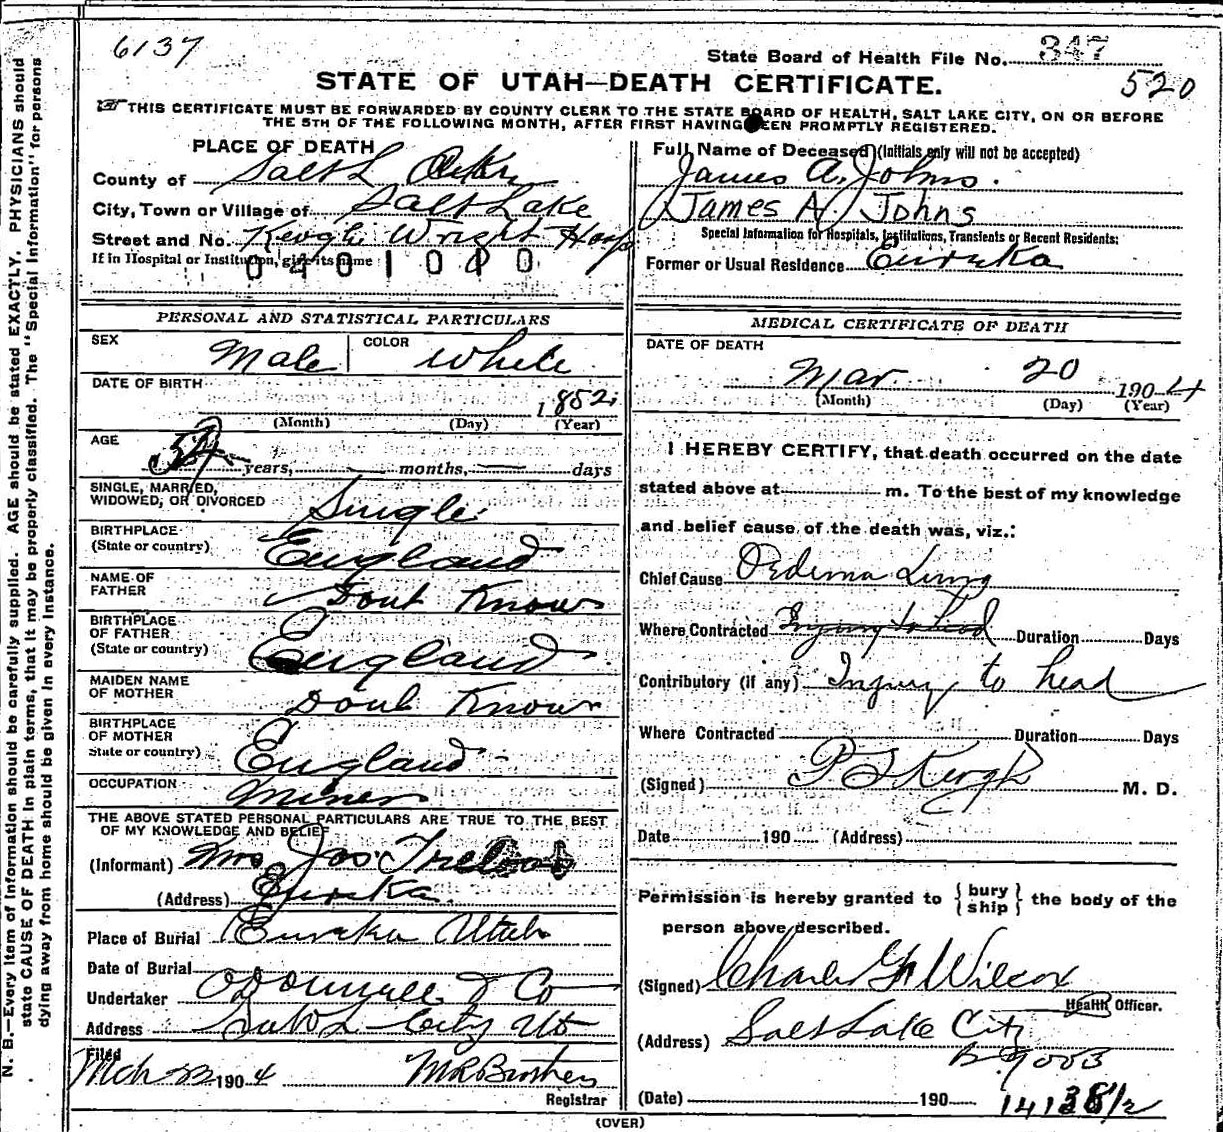 6137
State Board of Health File No. 347
520
STATE OF UTAH—DEATH CERTIFICATE.
THIS CERTIFICATE MUST BE FORWARDED BY COUNTY CLERK TO THE STATE BOARD OF HEALTH, SALT LAKE CITY, ON OR BEFORE
THE 5TH OF THE FOLLOWING MONTH, AFTER FIRST HAVING BEEN PROMPTLY REGISTERED.
PLACE OF DEATH
County of Salt L
City, Town or Village of Salt Lake
Street and No. Keogh Wright Hosp
If in Hospital or Institution, give its name
0401000
PERSONAL AND STATISTICAL PARTICULARS
SEX Male COLOR White
DATE OF BIRTH 1852
(Month) (Day) (Year)
AGE years, months, days
SINGLE, MARRIED,
WIDOWED, OR DIVORCED Single
BIRTHPLACE
(State or country) England
NAME OF
FATHER Dont Know
BIRTHPLACE
OF FATHER
(State or country) England
MAIDEN NAME
OF MOTHER Dont Know
BIRTHPLACE
OF MOTHER
State or country) England
OCCUPATION Miner
THE ABOVE STATED PERSONAL PARTICULARS ARE TRUE TO THE BEST
OF MY KNOWLEDGE AND BELIEF
(Informant) Mrs Jos
(Address) Eureka
Place of Burial Eureka Utah
Date of Burial
Undertaker O'Donnell & Co
Address Salt L City Ut
Filed
Mch 23 1904 Registrar
Full Name of Deceased (Initials only will not be accepted)
James A. Johns.
James A. Johns
Special Information for Hospitals, Institutions, Transients or Recent Residents:
Former or Usual Residence Eureka
MEDICAL CERTIFICATE OF DEATH
DATE OF DEATH
Mar 20 1904
(Month) (Day) (Year)
I HEREBY CERTIFY, that death occurred on the date
stated above at m. To the best of my knowledge
and belief cause of the death was, viz.:
Chief Cause Oedema Lung
Where Contracted Injury to head Duration Days
Contributory (if any) Injury to head
Where Contracted Duration Days
(Signed) P S Keogh M. D.
Date 190 (Address)
Permission is hereby granted to {bury ship} the body of the
person above described.
(Signed) Charles G Wilcox
Health Officer.
(Address) Salt Lake City
(Date) 190
(OVER)
N. B.—Every item of information should be carefully supplied. AGE should be stated EXACTLY. PHYSICIANS should
state CAUSE OF DEATH in plain terms, that it may be properly classified. The "Special Information" for persons
dying away from home should be given in every instance.